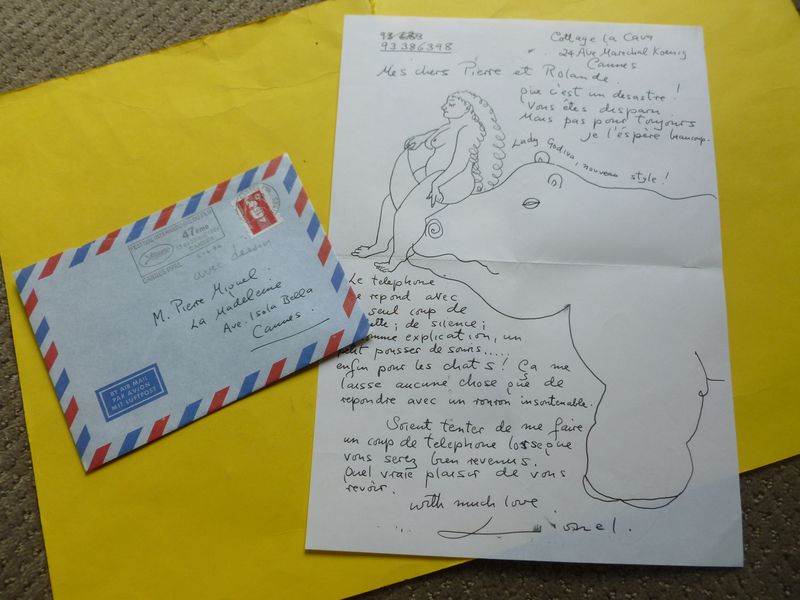 93 386398
Cottage La Cava
24 Ave Marechal Koenig
Cannes
Mes chers Pierre et Rolande.
que c'est un desastre!
Vous êtes disparu
Mais pas pour toujours
je l'éspère beaucoup.
Lady Godiva, nouveau style!
Le telephone
repond avec
seul coup de
de silence;
comme explication, un
petit pousser de souris....,
enfin pour les chats! Ça me
laisse aucune chose que de
repondre avec un ronron insoutenable.
Soient tenter de me faire
un coup de telephone lorsque
vous serez bien revenus.
Quel vraie plaisir de vous
revoir.
with much love
47ème
CANNES
avec dessin
M. Pierre Miquel
La Madeleine
Ave. Isola Bella
Cannes.
BY AIR MAIL
PAR AVION
MIT LUFTPOST